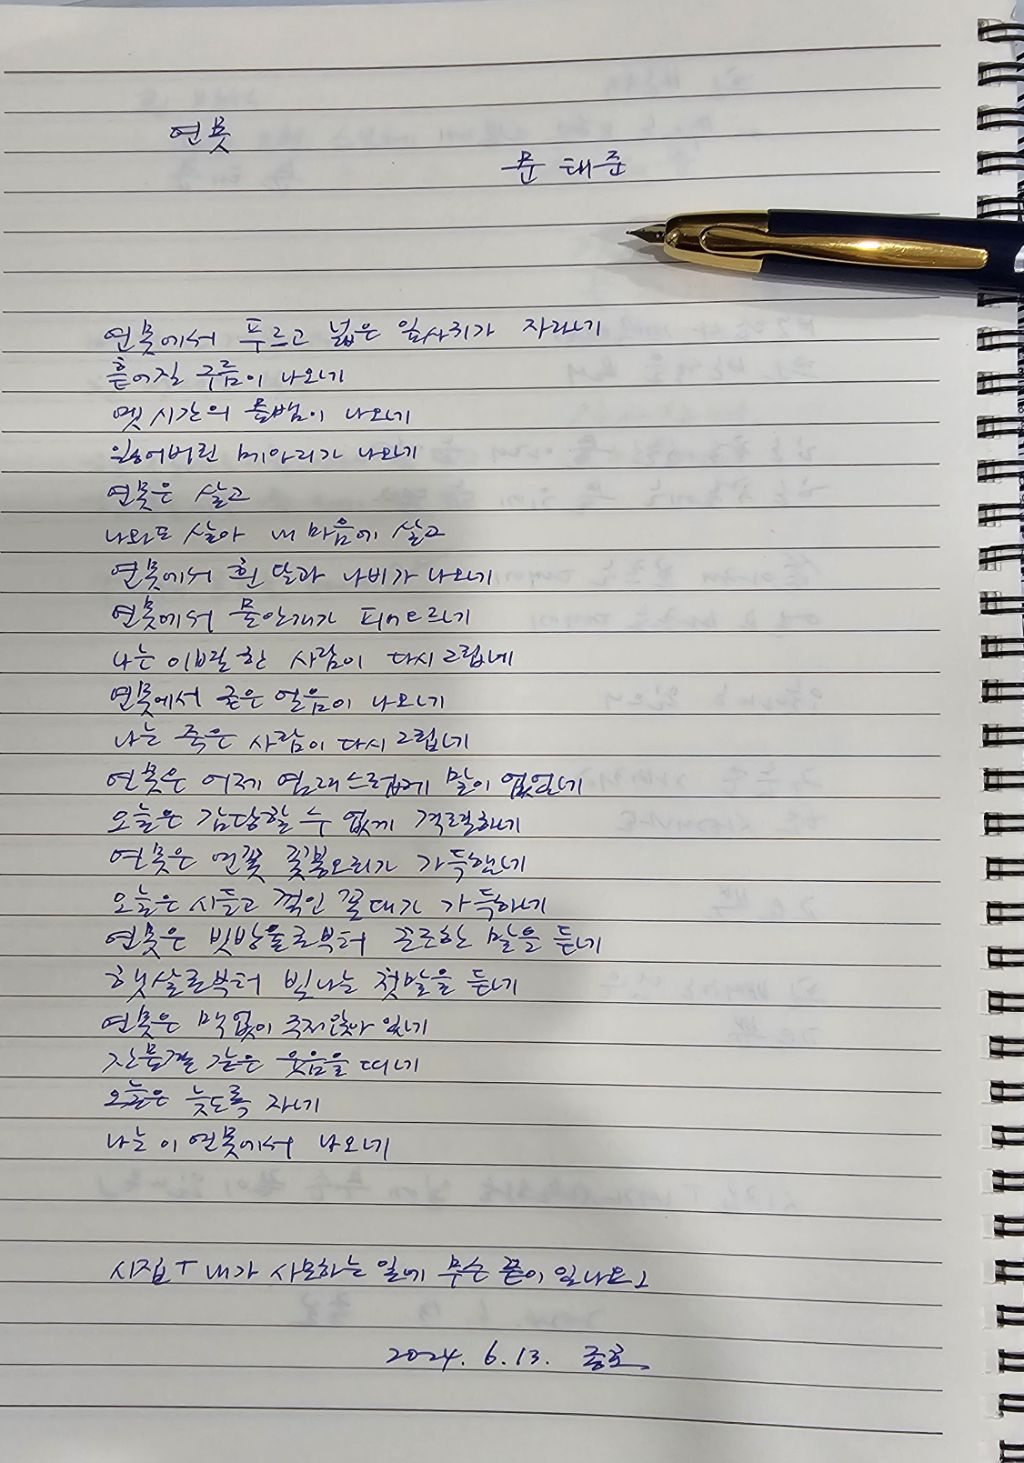 연못
문태준
연못에서 푸르고 넓은 잎사귀가 자라네
흩어질 구름이 나오네
몇 시간의 돌범이 나오네
잃어버린 메아리가 나오네
연못은 살고
나와도 살아 내 마음에 살고
연못에서 흰 달과 나비가 나오네
연못에서 물안개가 피어오르네
나는 이별한 사람이 다시 그립네
연못에서 굳은 얼음이 나오네
나는 죽은 사람이 다시 그립네
연못은 어제 염려스럽게 말이 없었네
오늘은 감당할 수 없게 격렬하네
연못은 연꽃 꽃봉오리가 가득했네
오늘은 시들고 꺾인 꽃대가 가득하네
연못은 빗방울로부터 꼿꼿한 말을 듣네
햇살로부터 빛나는 첫말을 듣네
연못은 맥없이 주저앉아 있네
잔물결 같은 웃음을 띠네
오늘은 늦도록 자네
나는 이 연못에서 나오네
시집「내가 사모하는 일에 무슨 끝이 있나요」
2024. 6. 13. 종로